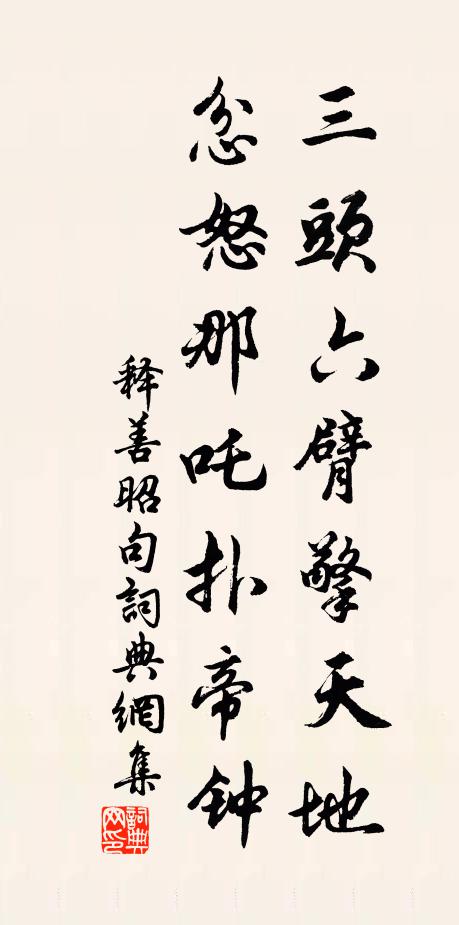 三頭六臂擎天地
忿怒那吒扑帝钟
释善昭句詞典網集
詞典网印